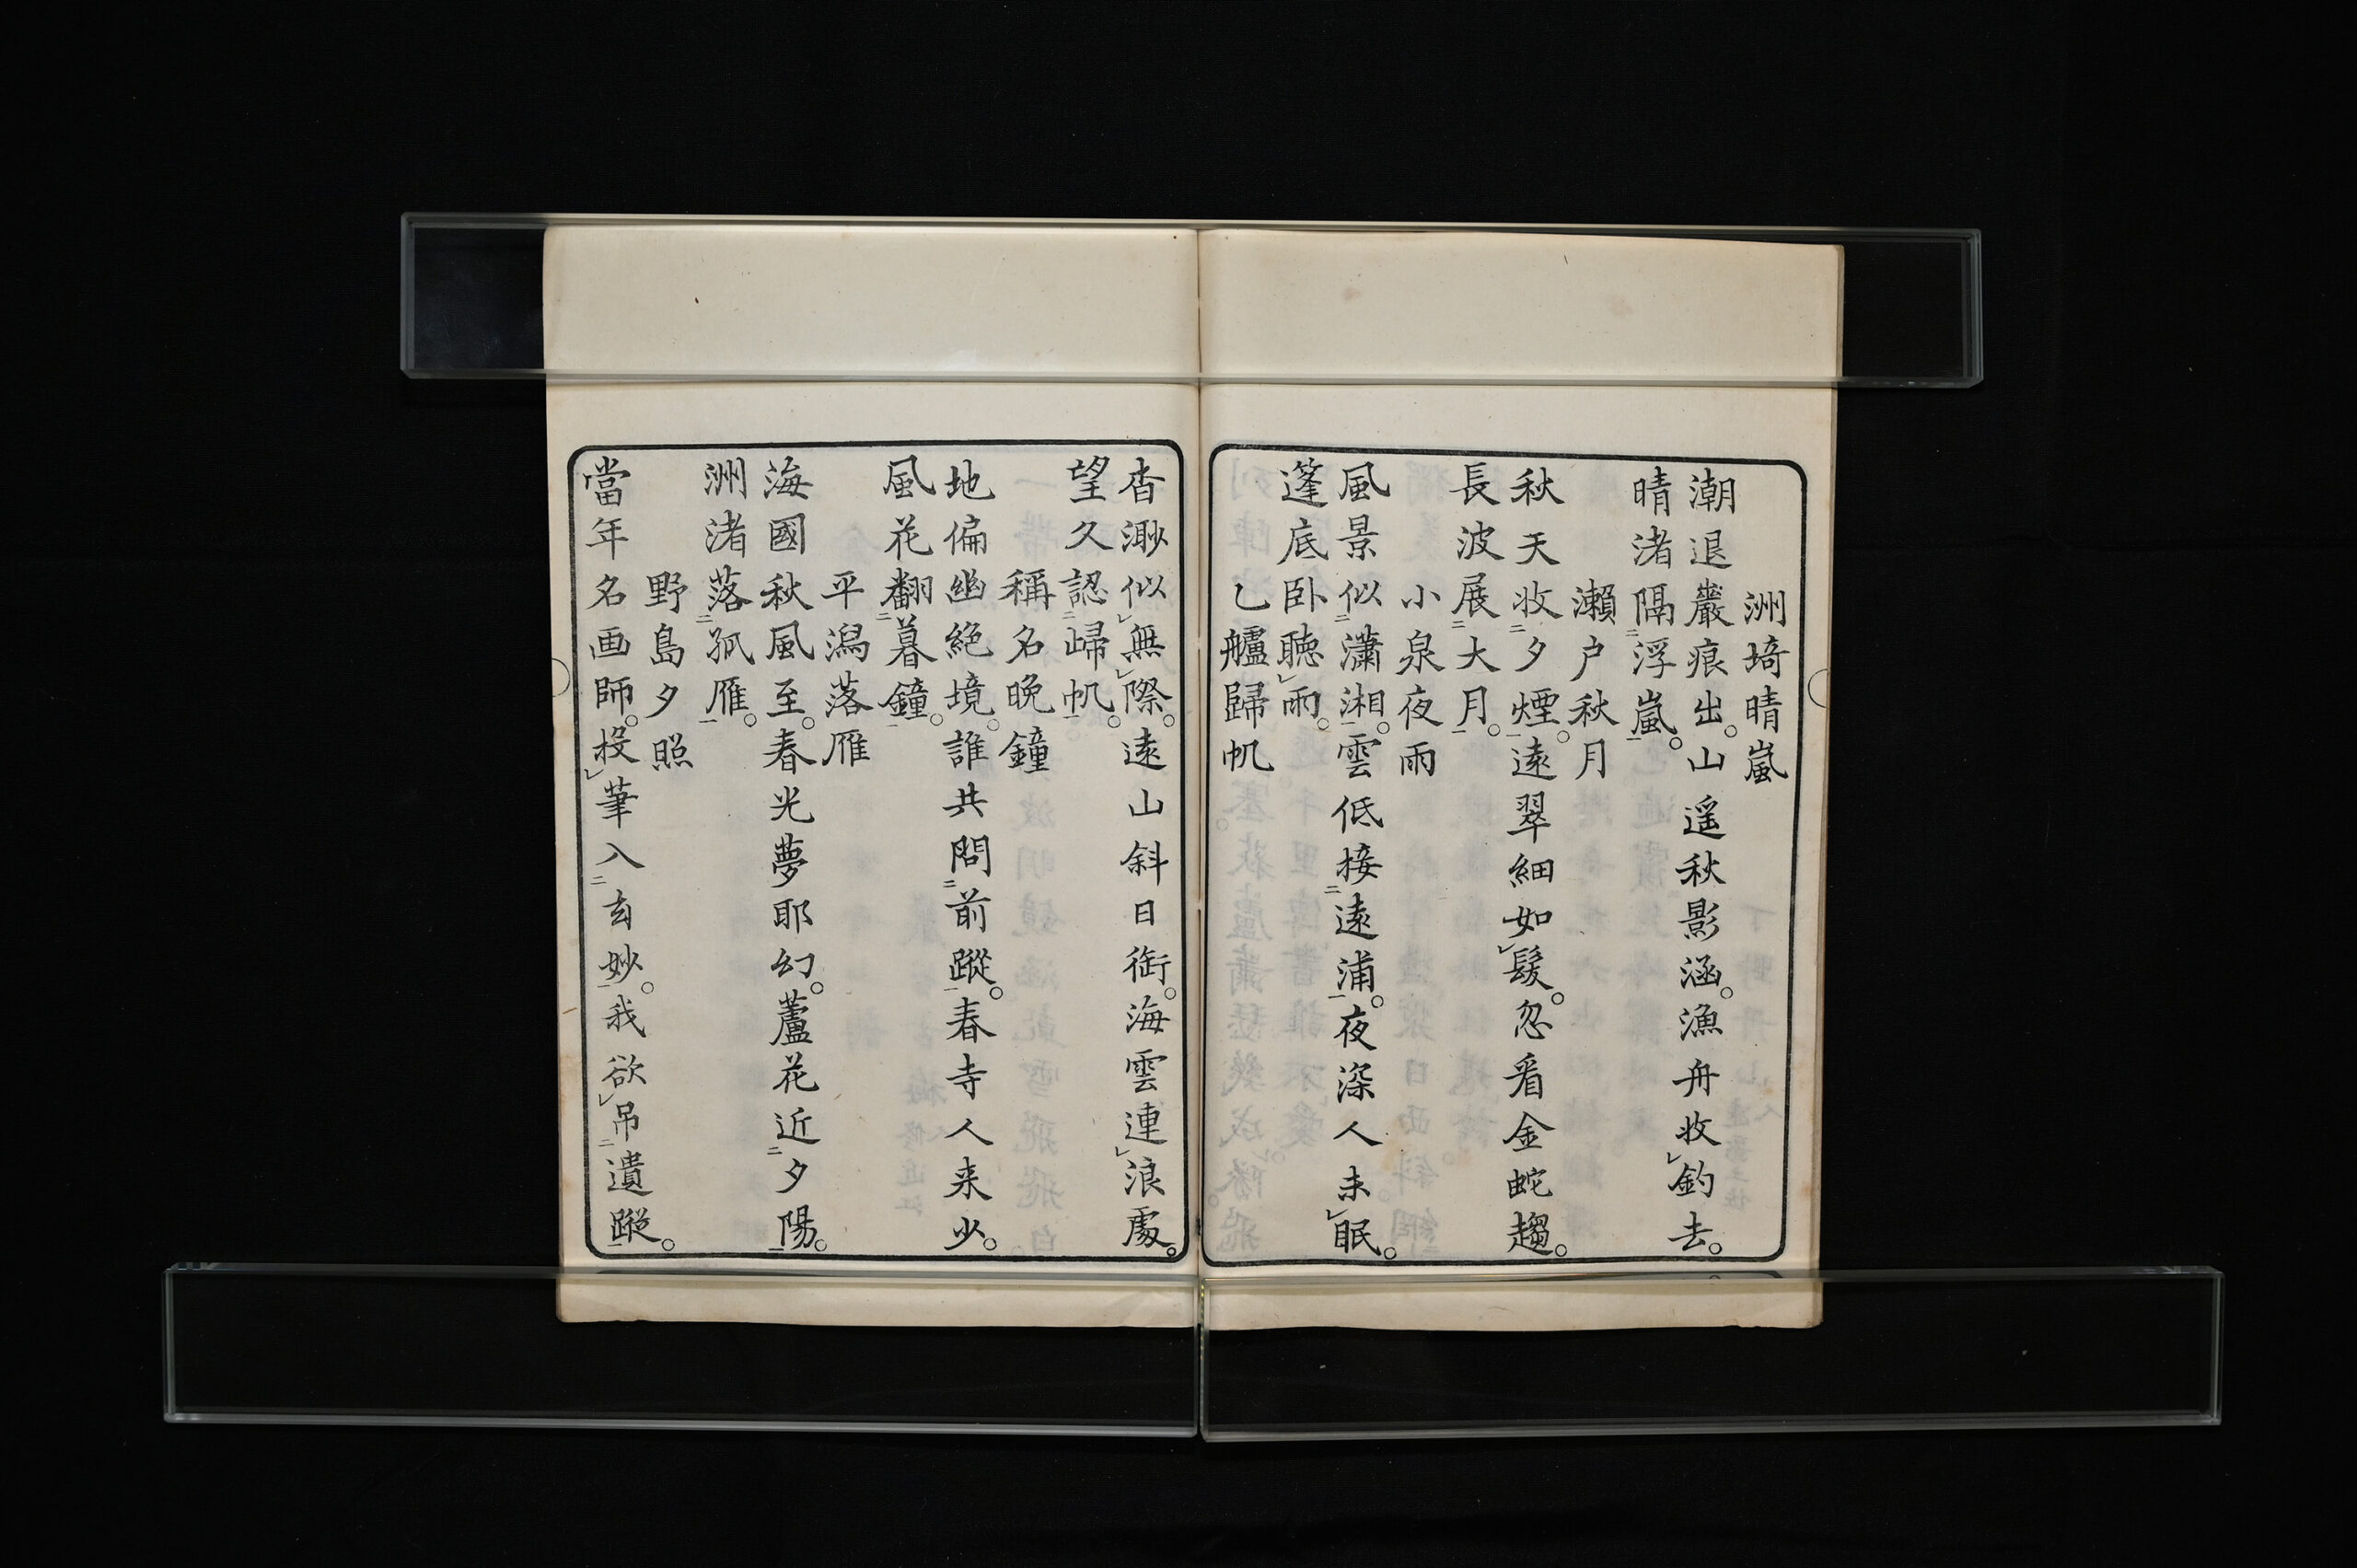 洲﨑晴嵐
潮退巖痕出。山遥秋影涵。漁舟收㆑釣去。
晴渚隔㆓浮嵐㆒。
瀬戸秋月
秋天收㆓夕煙㆒。遠翠細如㆑髮。忽看金蛇趨。
長波展㆓大月㆒。
小泉夜雨
風景似㆓瀟湘㆒。雲低接㆓遠浦㆒。夜深人未㆑眠。
篷底臥聴㆑雨。
乙艫歸帆
杳渺似㆑無㆑際。遠山斜日銜。海雲連㆑浪處。
望久認㆓歸帆㆒。
稱名晚鐘
地偏幽絕境。誰共問㆓前蹤㆒。春寺人来少。
風花翻㆓暮鐘㆒。
平潟落雁
海國秋風至。春光夢耶幻。蘆花近㆓夕陽㆒。
洲渚落㆓孤雁㆒。
野島夕照
當年名画師。投㆑筆入㆓玄妙㆒。我欲㆑吊㆓遺蹤㆒。